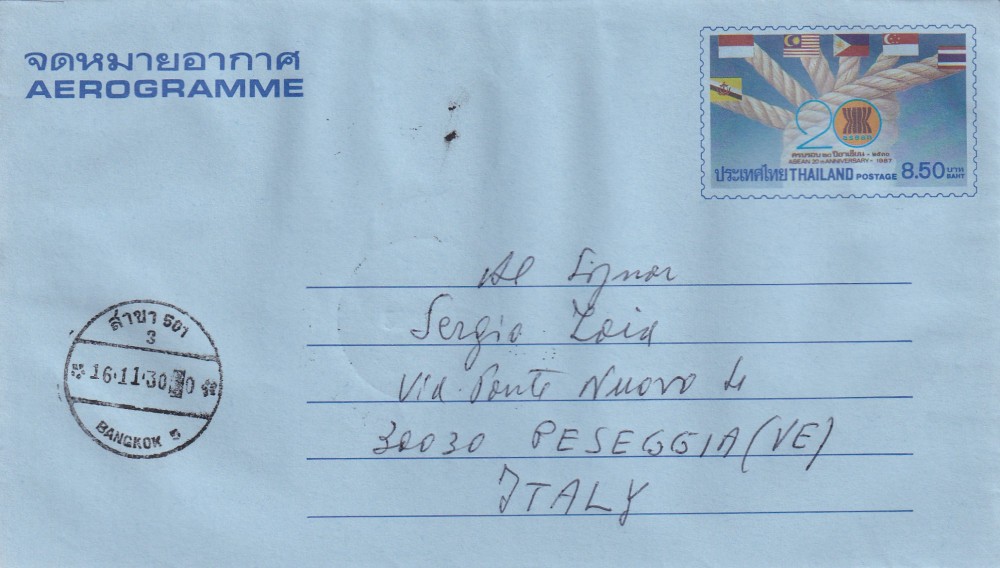 จดหมายอากาศ
AEROGRAMME
20
ASEAN
ครบรอบ ๒๐ ปีอาเซียน - ๒๕๓๐
ASEAN 20th ANNIVERSARY - 1987
ประเทศไทย THAILAND POSTAGE 8.50 บาท BAHT
Al Signor
Sergio Zoia
Via Ponte Nuovo 4
30030 PESEGGIA (VE)
ITALY
สาขา 501
3
16.11.30
BANGKOK 5